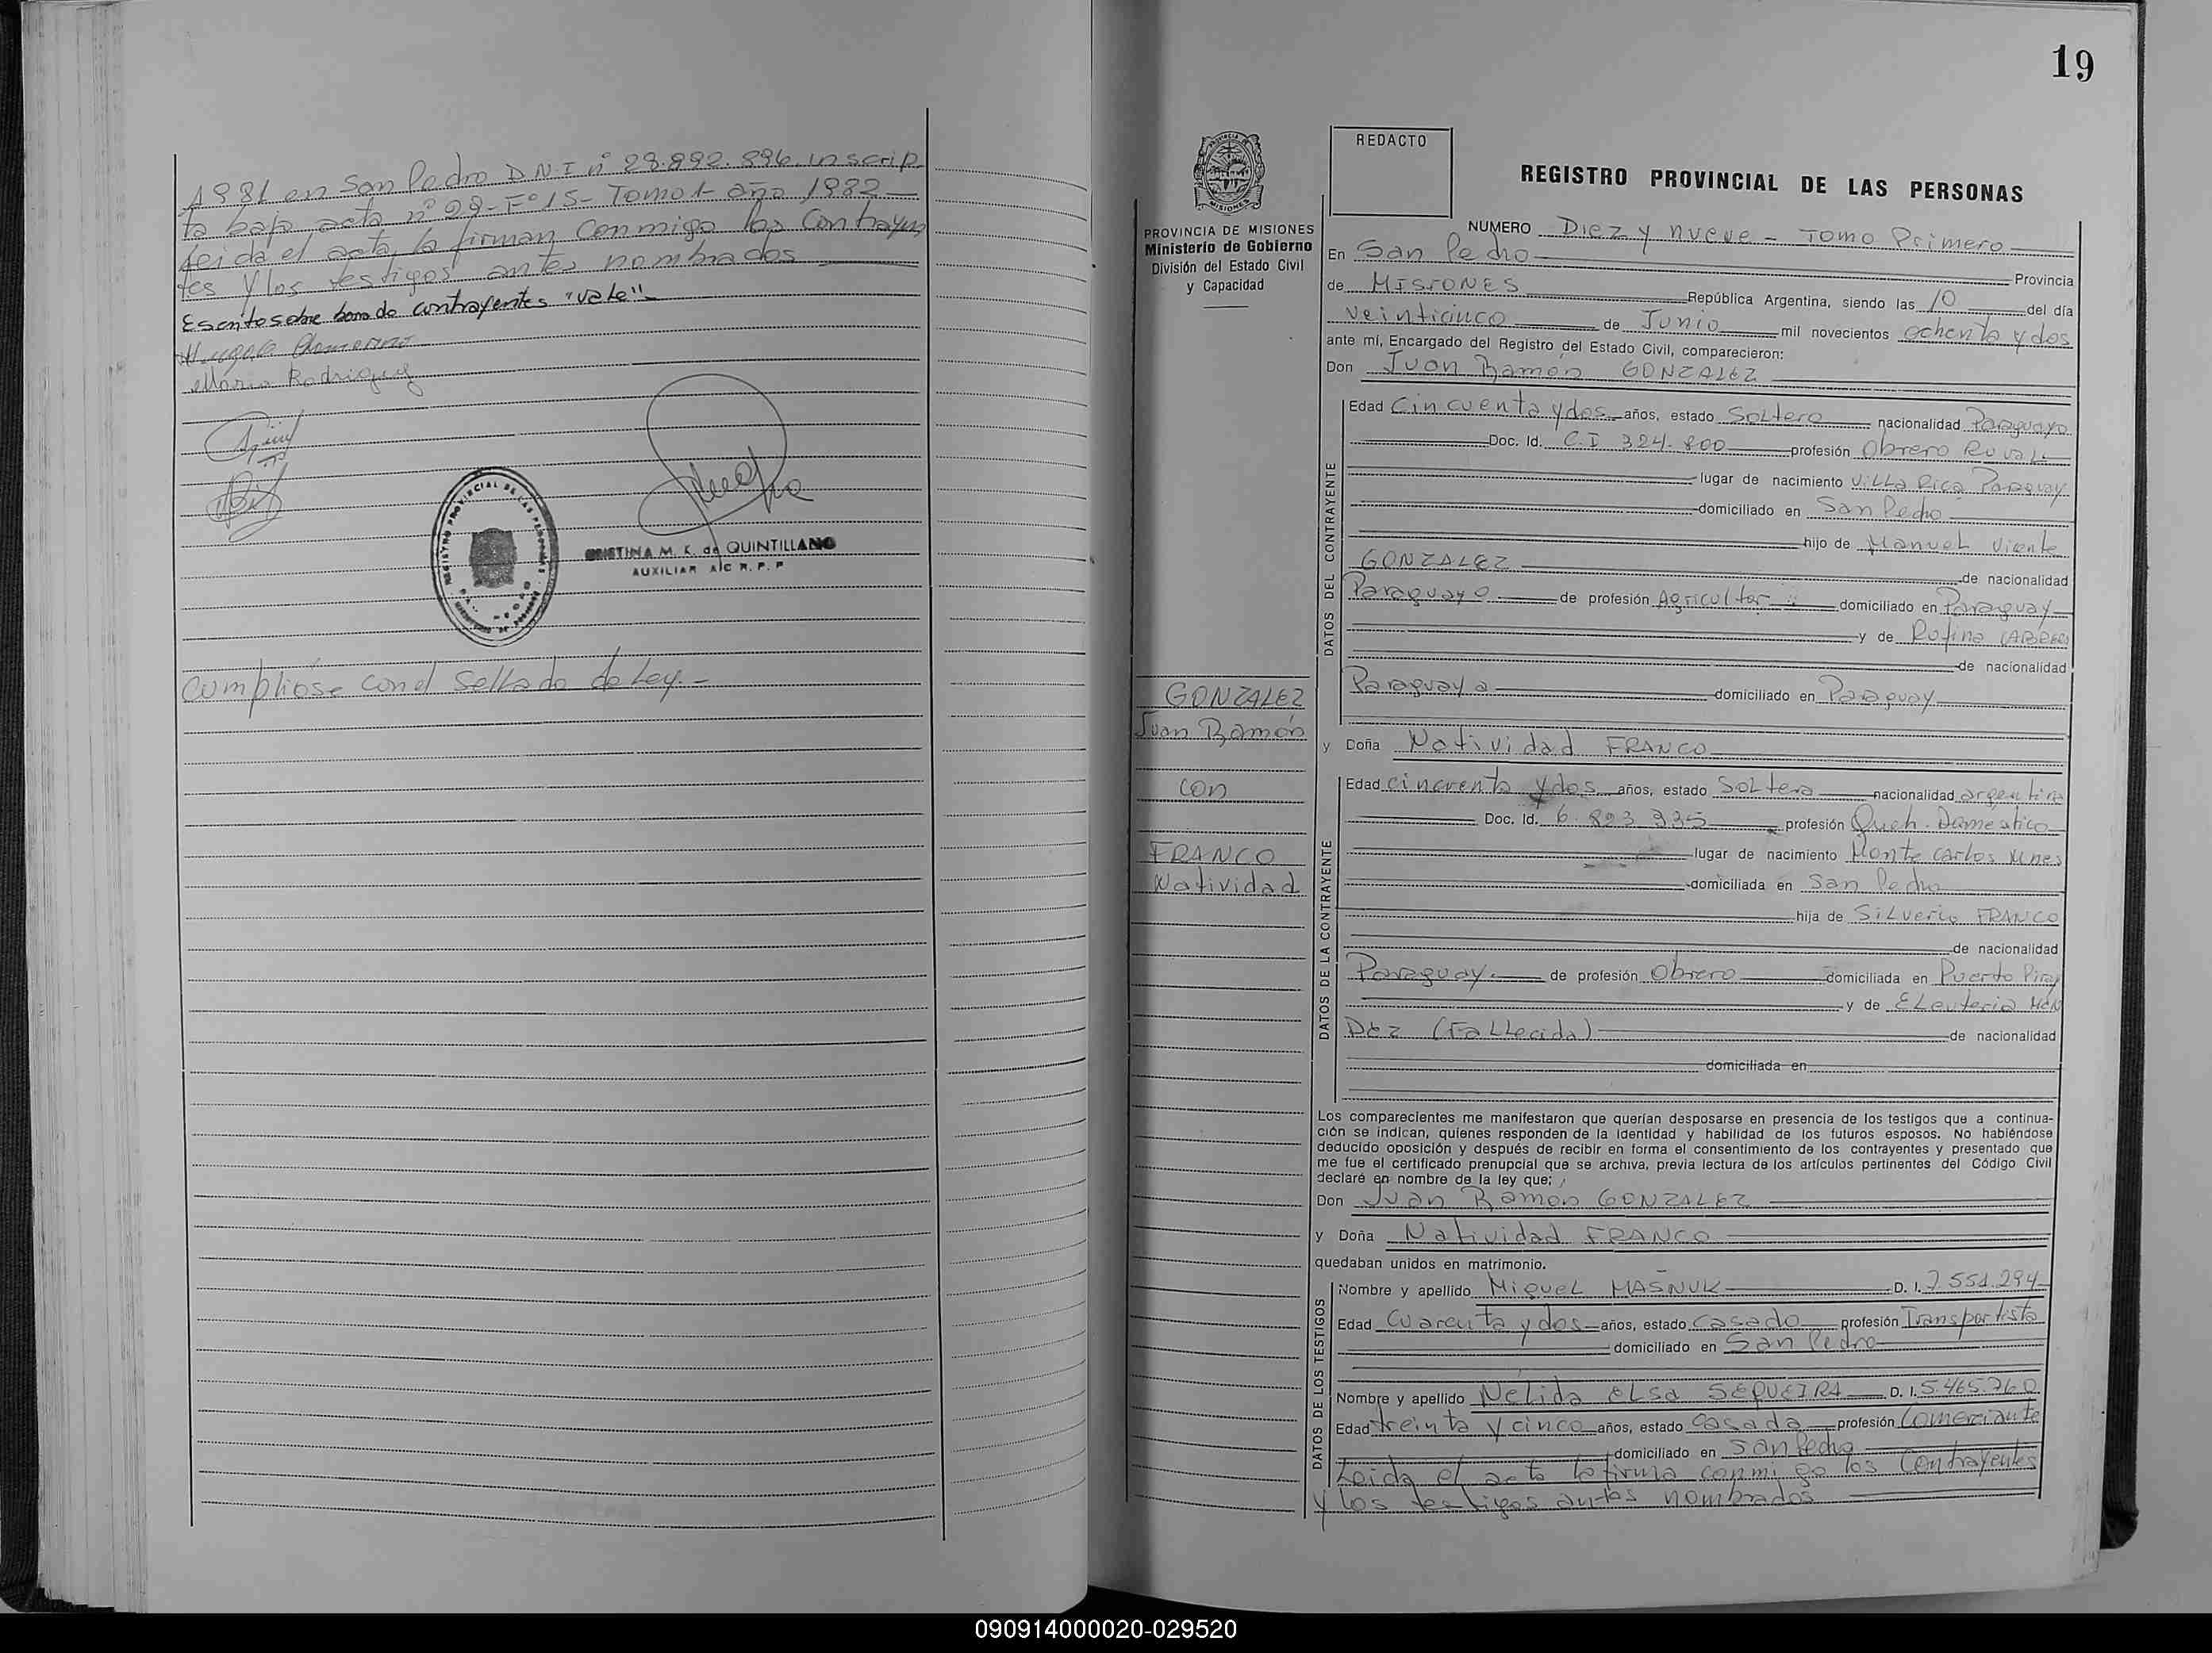 1981 en San Pedro D.N.I nº 28.892.896 inscrip
ta bajo acta nº 28-Fº15-Tomo 1- año 1982
leida el acta, la firman conmigo los Contrayen
tes y los testigos antes nombrados
Escrito sobre borrado contrayentes "vale"-
Maria Rodriguez
REGISTRO PROVINCIAL DE LAS PERSONAS
CRISTINA M. K. de QUINTILLANO
AUXILIAR A/C R. P. P
Cumpliose con el Sellado de Ley.-
19
REDACTO
PROVINCIA DE MISIONES
Ministerio de Gobierno
División del Estado Civil
y Capacidad
GONZALEZ
Juan Ramón
con
FRANCO
Natividad
REGISTRO PROVINCIAL DE LAS PERSONAS
NUMERO Diez y nueve - Tomo Primero
En San Pedro Provincia
de MISIONES República Argentina, siendo las 10 del día
veinticinco de Junio mil novecientos ochenta y dos
ante mí, Encargado del Registro del Estado Civil, comparecieron:
Don Juan Ramón GONZALEZ
DATOS DEL CONTRAYENTE
Edad Cincuenta y dos años, estado Soltero nacionalidad Paraguayo
Doc. Id. C.I 324.800 profesión Obrero Rural
lugar de nacimiento Villa Rica Paraguay
domiciliado en San Pedro
hijo de Manuel Viente
GONZALEZ de nacionalidad
Paraguayo de profesión Agricultor domiciliado en Paraguay
y de Rufina
de nacionalidad
Paraguaya domiciliado en Paraguay
y Doña Natividad FRANCO
DATOS DE LA CONTRAYENTE
Edad cincuenta y dos años, estado Soltera nacionalidad argentina
Doc. Id. 6.823.335 profesión Queh. Domestico
lugar de nacimiento Monte Carlos Mnes
domiciliada en San Pedro
hija de Silverio FRANCO
de nacionalidad
Paraguay. de profesión Obrero domiciliada en Puerto Piray
y de Eleuteria MEN
DEZ (Fallecida) de nacionalidad
domiciliada en
Los comparecientes me manifestaron que querían desposarse en presencia de los testigos que a continua-
ción se indican, quienes responden de la identidad y habilidad de los futuros esposos. No habiéndose
deducido oposición y después de recibir en forma el consentimiento de los contrayentes y presentado que
me fue el certificado prenupcial que se archiva, previa lectura de los artículos pertinentes del Código Civil
declaré en nombre de la ley que;
Don Juan Ramon GONZALEZ
y Doña Natividad FRANCO
quedaban unidos en matrimonio.
DATOS DE LOS TESTIGOS
Nombre y apellido Miguel MASNUK D. I. 7.551.294
Edad Cuarenta y dos años, estado casado profesión Transportista
domiciliado en San Pedro
Nombre y apellido Nelida Elsa SEQUEIRA D. I. 5.465.760
Edad treinta y cinco años, estado casada profesión Comerciante
domiciliado en San Pedro
Leida el acta la firma conmigo los Contrayentes
y los testigos antes nombrados
090914000020-029520